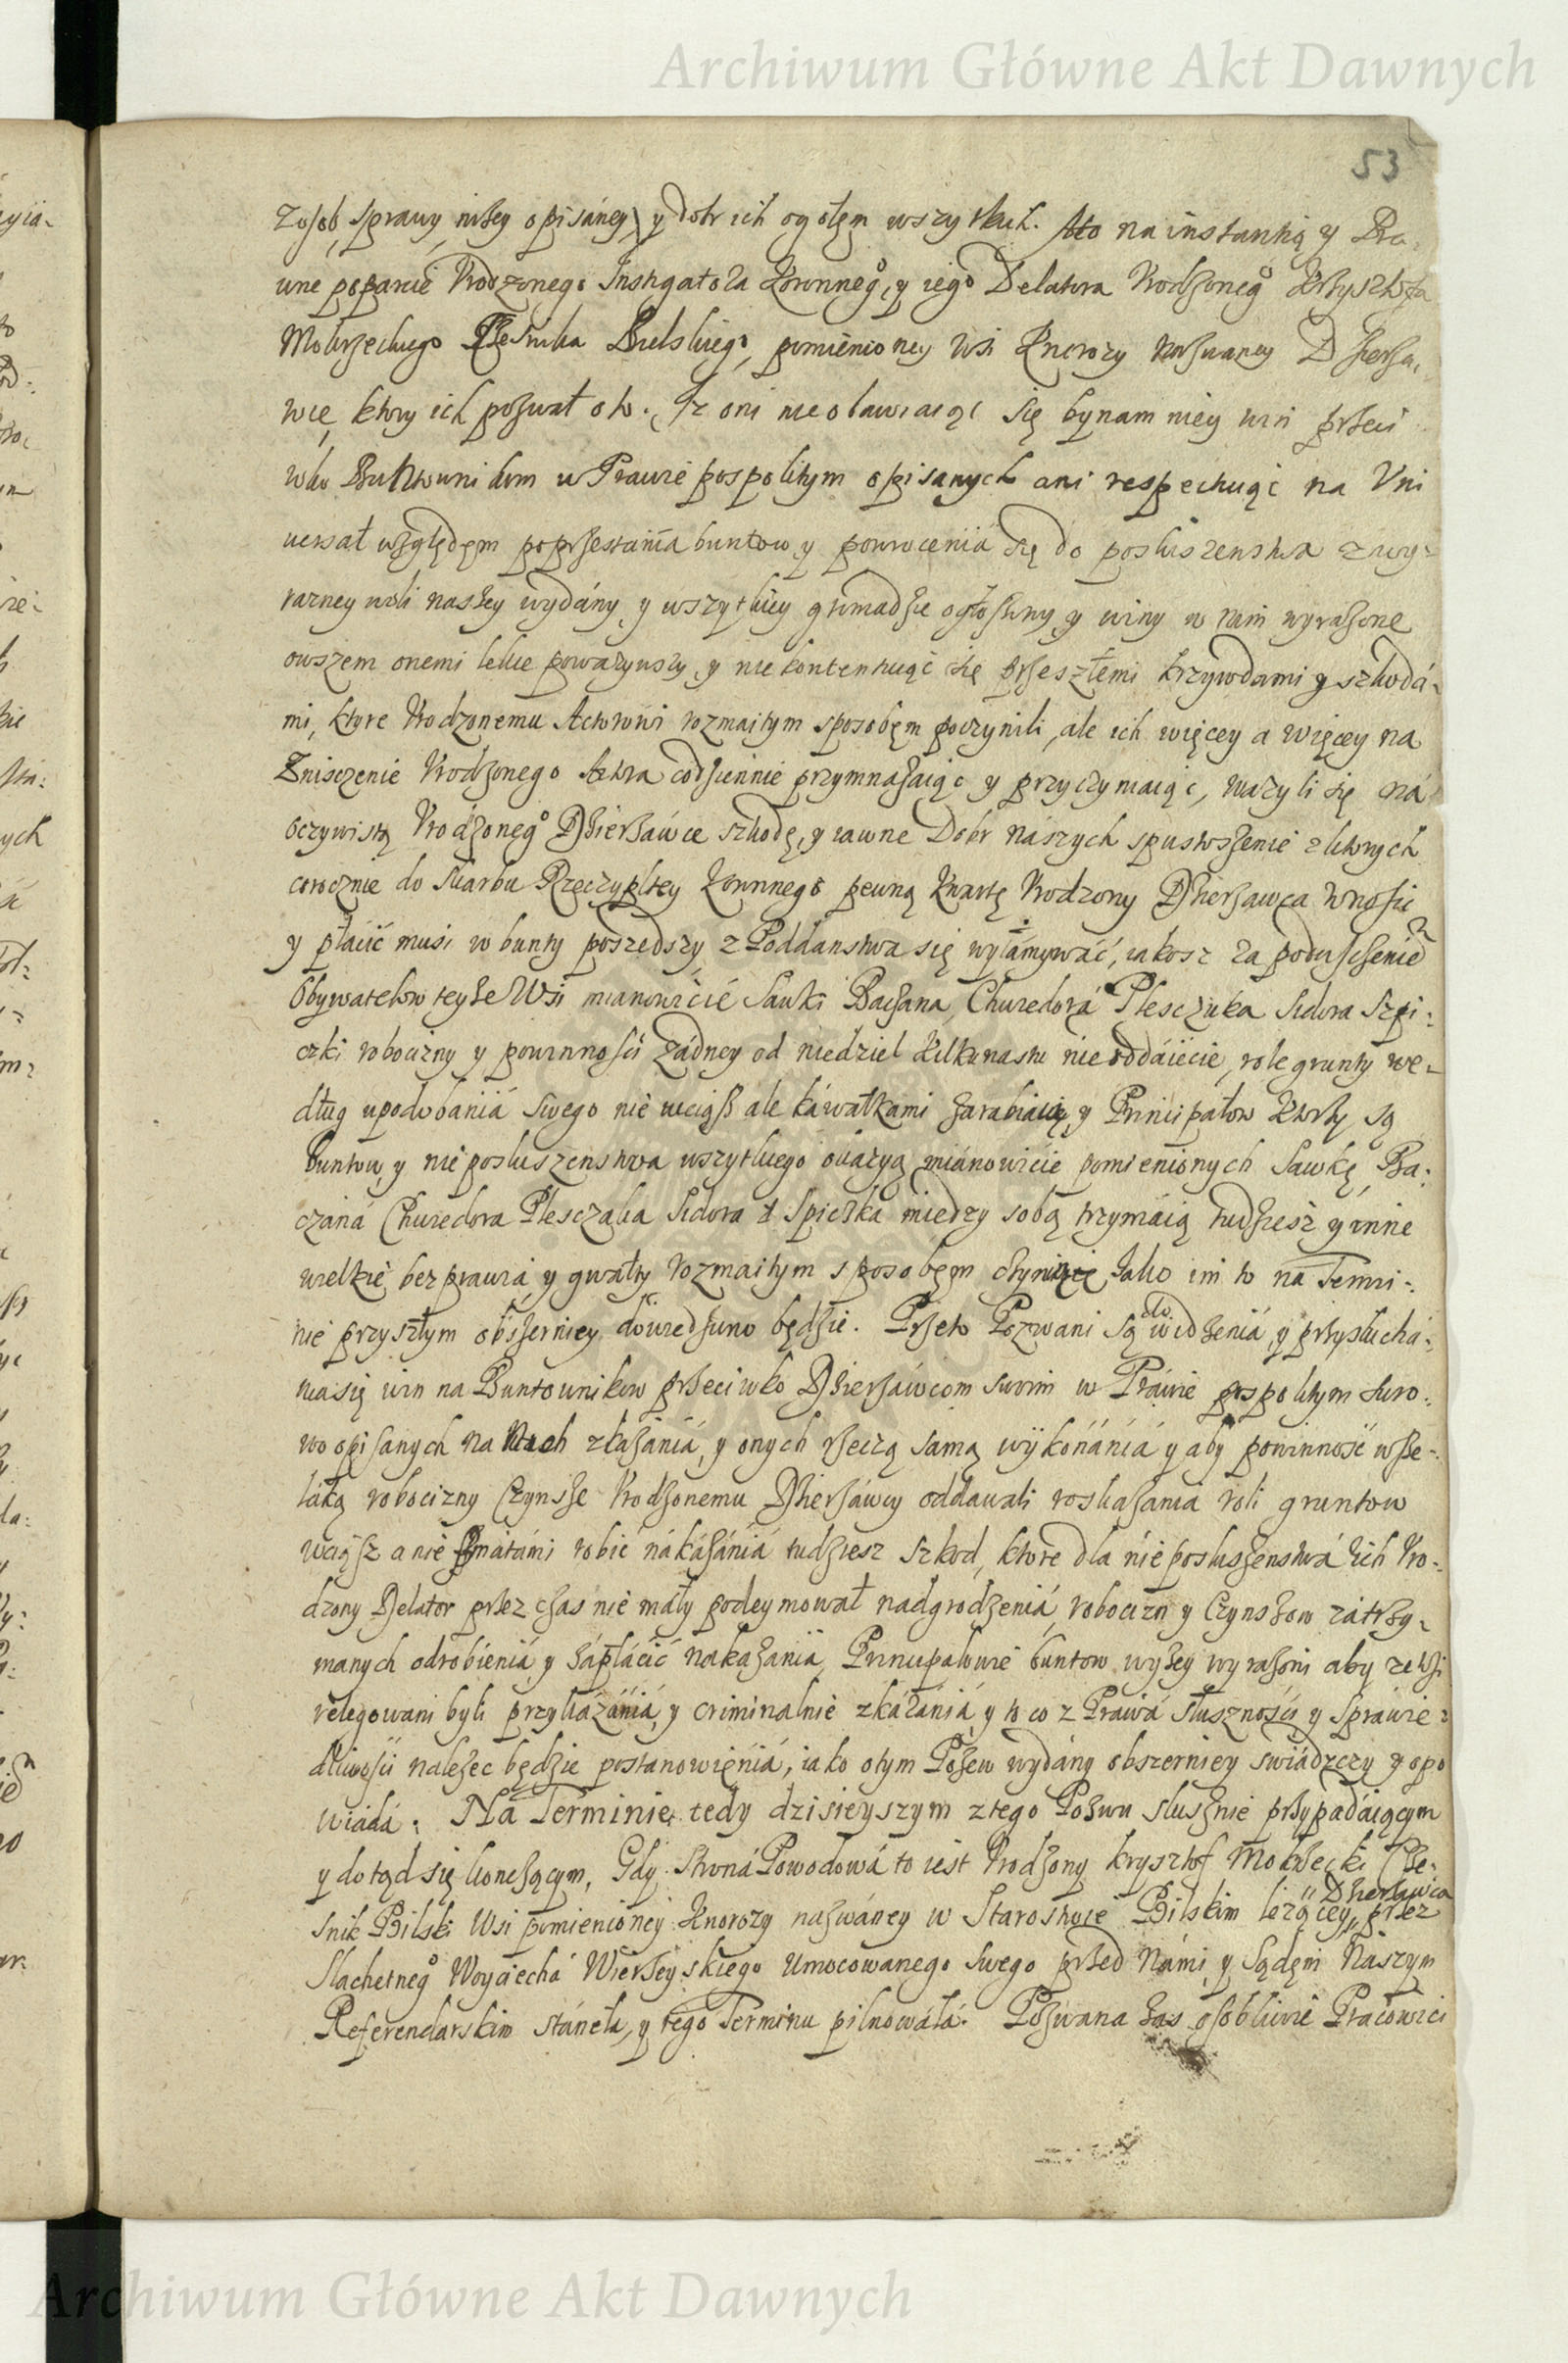 Archiwum Główne Akt Dawnych
53
z osob, sprawy niżey opisáney, y dobr ich ogołem wszytkich. Ato na instantią y Pra-
wne poparcie Urodzonego Instigatora Koronnego, y iego Delatora Urodzonego Krzysztofa
Mokrzeckiego Cześnika Bielskiego, pomienioney wsi Knorozy nazwaney Dzierża-
wcę, ktory ich pozwał oto. Iz oni nie obawiaiąc się bynamniey win przeci
wko Buntownikom w Prawie pospolitym opisanych ani respectuiąc na Uni
uersał względem poprzestania buntow y powrocenia się do posłuszenstwa z wy-
razney woli naszey wydány, y wszytkiey gromadzie ogłoszony, y winy w nim wyrażone
owszem onemi lekce poważywszy, y nie kontentuiąc się przeszłemi krzywdami y szkodá-
mi, ktore Urodzonemu Actorowi rozmaitym sposobem poczynili, ale ich więcey a więcey na
Zniszczenie Urodzonego Aktora codziennie przymnażaiąc y przyczyniaiąc, ważyli się ná
oczywistą Urodzonego Dzierżáwce szkodę, y iawne Dobr nászych spustoszenie z ktorych
corocznie do Skarbu Rzeczyplitey Koronnego pewną Kwartę Urodzony Dzierżawca wnosic
y płacic musi w bunty poszedszy z Poddanstwa się wyłamywáć, iakosz za poduszczeniem
Obywatelow teyże Wsi mianowicie Sawki Baczana, Chwedora Plesczuka Sidora Szpi-
czki robocizny y powinnosci żádney od niedziel kilkunastu nie oddáiecie, role grunty we-
dług upodobaniá swego nie wciąsz ale káwałkami zarabiaią y Principałow ktorzy są
buntow, y nieposłuszenstwa wszytkiego okázyą, miánowicie pomienionych Sawkę Ba-
czaná Chwedora Plesczaka Sidora Spiczka między sobą trzymáią tudzież y inne
wielkie bezprawia, y gwałty rozmaitym sposobem czyniąc Jako im to na Termi-
nie przyszłym obszerniey dowiedziono będzie. Przeto Pozwani są do widzeniá, y przysłuchá-
nia się win na Buntownikow przeciwko Dzierżáwcom swoim w Práwie pospolitym suro-
wo opisanych na nich zkazániá, y onych rzeczą samą wykonániá y aby powinność wsze-
laką robocizny Czynsze Urodzonemu Dzierżáwcy oddawali roskazania roli gruntow
wciąsz a nie szmatámi robić nákázániá tudziesz szkod, ktore dla nieposłuszenstwá ich Uro-
dzony Delator przez czas nie mały podeymował nadgrodzeniá, robocizn y Czynszow zatrzy-
manych odrobieniá y zápłácić nakazaniá, Principałowie buntow wyżey wyrażoni aby ze wsi
relegowani byli przykázániá, y criminalnie zkáraniá, y to co z Práwá słusznosci y Sprawie-
dliwosci nalezec będzie postanowieniá, iako o tym Pozew wydány obszerniey swiádczy y opo
wiádá. Na Terminie tedy dzisieyszym z tego Pozwu słusznie przypadáiącym
y dotąd się konczącym, Gdy Stroná Powodowá to iest Urodzony Krysztof Mokrzecki Cze-
snik Bilski Wsi pomienioney Knorozy nazwáney w Starostwie Bilskim leżącey, Dzierżawca przez
Slachetnego Woyciechá Wierzeyskiego Umocowanego swego przed Námi, y Sądem Naszym
Referendarskim stáneła, y tego Terminu pilnowáłá. Pozwana zas osobliwie Pracowici
Archiwum Główne Akt Dawnych